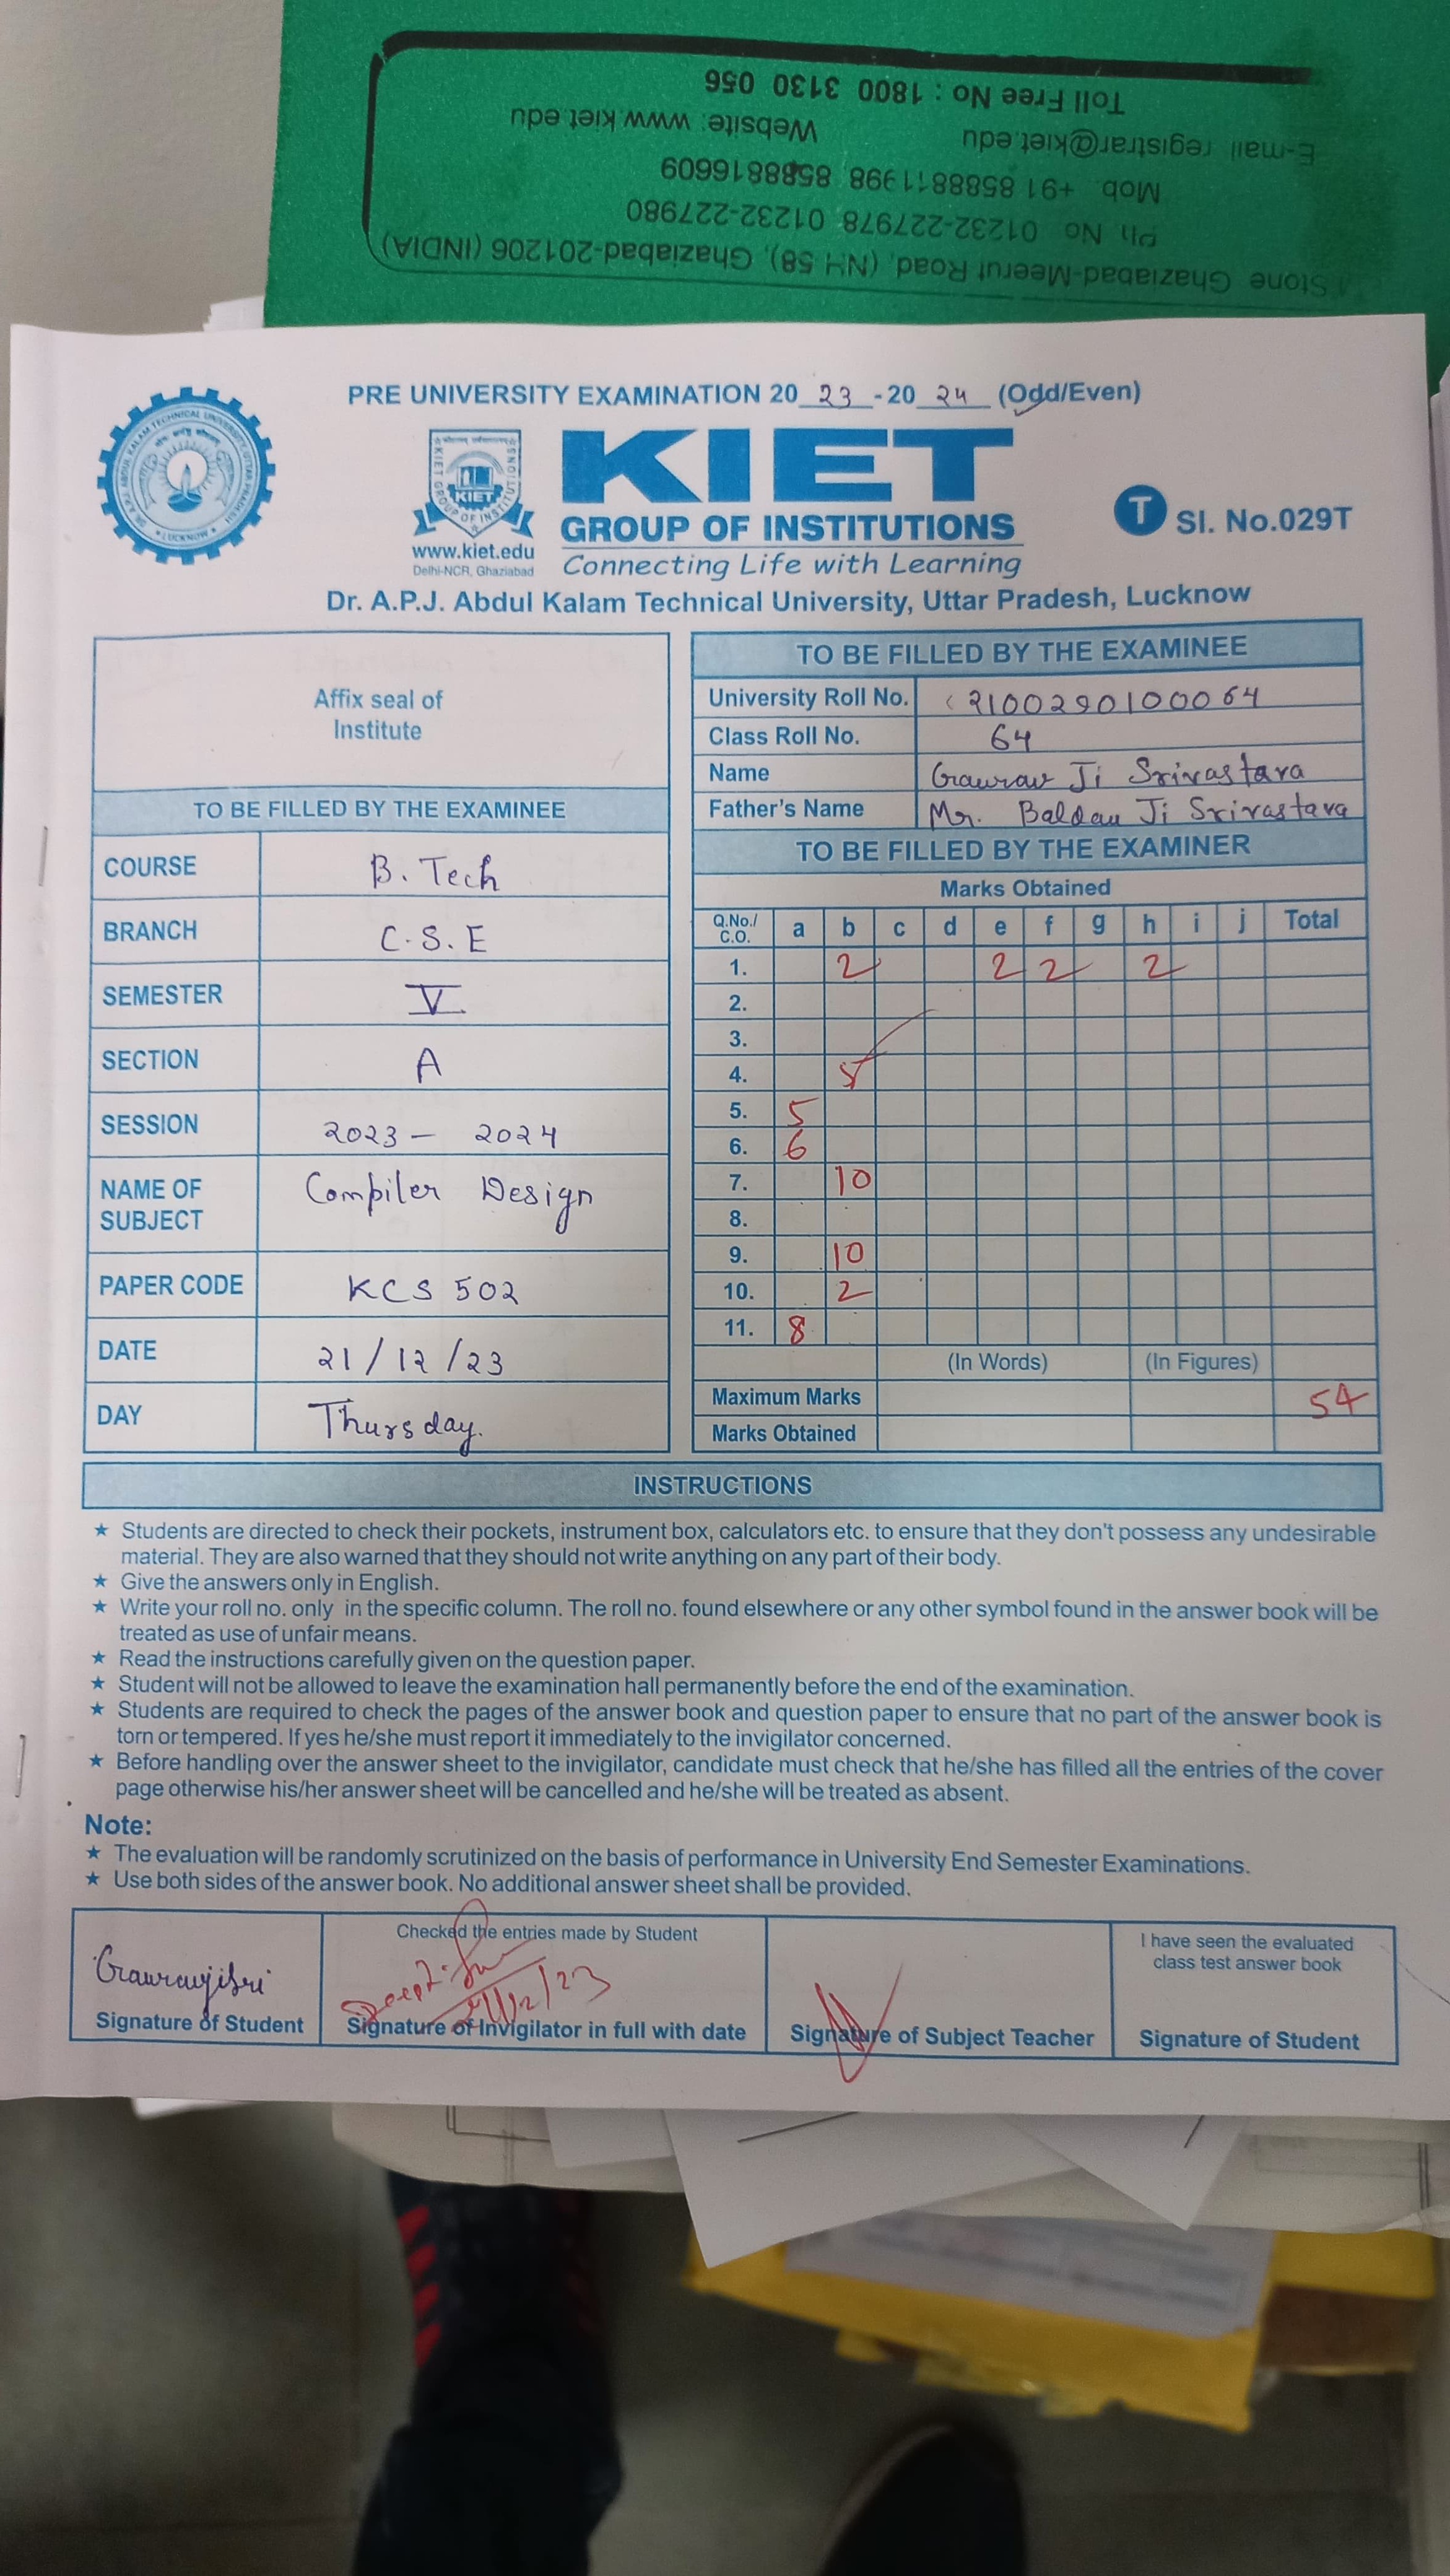 Toll Free No : 1800 3130 056
E-mail registrar@kiet.edu Website: www.kiet.edu
Mob. +91 8588811998, 8588816609
Ph. No 01232-227978, 01232-227980
Stone Ghaziabad-Meerut Road, (NH 58), Ghaziabad-201206 (INDIA)
PRE UNIVERSITY EXAMINATION 20 23 - 20 24 (Odd/Even)
DR. A.P.J. ABDUL KALAM TECHNICAL UNIVERSITY, UTTAR PRADESH
LUCKNOW
KIET GROUP OF INSTITUTIONS
KIET
www.kiet.edu
Delhi-NCR, Ghaziabad
KIET
GROUP OF INSTITUTIONS
Connecting Life with Learning
T Sl. No.029T
Dr. A.P.J. Abdul Kalam Technical University, Uttar Pradesh, Lucknow
Affix seal of
Institute
TO BE FILLED BY THE EXAMINEE
COURSE B. Tech
BRANCH C.S.E
SEMESTER V
SECTION A
SESSION 2023 - 2024
NAME OF
SUBJECT Compiler Design
PAPER CODE KCS 502
DATE 21/12/23
DAY Thursday.
TO BE FILLED BY THE EXAMINEE
University Roll No. 2100290100064
Class Roll No. 64
Name Gaurav Ji Srivastava
Father's Name Mr. Baldau Ji Srivastava
TO BE FILLED BY THE EXAMINER
Marks Obtained
Q.No./
C.O. a b c d e f g h i j Total
1. 2 2 2 2
2.
3.
4. 5
5. 5
6. 6
7. 10
8.
9. 10
10. 2
11. 8
(In Words) (In Figures)
Maximum Marks 54
Marks Obtained
INSTRUCTIONS
★ Students are directed to check their pockets, instrument box, calculators etc. to ensure that they don't possess any undesirable
material. They are also warned that they should not write anything on any part of their body.
★ Give the answers only in English.
★ Write your roll no. only in the specific column. The roll no. found elsewhere or any other symbol found in the answer book will be
treated as use of unfair means.
★ Read the instructions carefully given on the question paper.
★ Student will not be allowed to leave the examination hall permanently before the end of the examination.
★ Students are required to check the pages of the answer book and question paper to ensure that no part of the answer book is
torn or tempered. If yes he/she must report it immediately to the invigilator concerned.
★ Before handling over the answer sheet to the invigilator, candidate must check that he/she has filled all the entries of the cover
page otherwise his/her answer sheet will be cancelled and he/she will be treated as absent.
Note:
★ The evaluation will be randomly scrutinized on the basis of performance in University End Semester Examinations.
★ Use both sides of the answer book. No additional answer sheet shall be provided.
Gauravjisri
Signature of Student
Checked the entries made by Student
21/12/23
Signature of Invigilator in full with date
Signature of Subject Teacher
I have seen the evaluated
class test answer book
Signature of Student